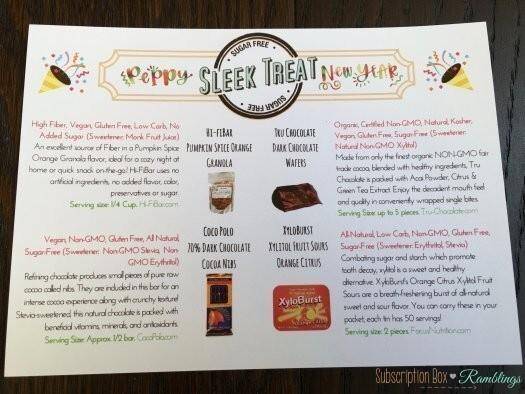 SUGAR FREE
Peppy SLEEK TREAT New Year
SUGAR FREE
High Fiber, Vegan, Gluten Free, Low Carb, No
Added Sugar (Sweetener: Monk Fruit Juice)
An excellent source of Fiber in a Pumpkin Spice
Orange Granola flavor, ideal for a cozy night at
home or quick snack on-the-go! Hi-FiBar uses no
artificial ingredients, no added flavor, color,
preservatives or sugar.
Serving size: 1/4 Cup. Hi-FiBar.com
Hi-FiBar
Pumpkin Spice Orange
Granola
Tru Chocolate
Dark Chocolate
Wafers
Organic, Certified Non-GMO, Natural, Kosher,
Vegan, Gluten Free, Sugar-Free (Sweetener:
Natural Non-GMO Xylitol)
Made from only the finest organic NON-GMO fair
trade cocoa, blended with healthy ingredients, Tru
Chocolate is packed with Acai Powder, Citrus &
Green Tea Extract. Enjoy the decadent mouth feel
and quality in conveniently wrapped single bites.
Serving Size up to 5 pieces. Tru-Chocolate.com
Vegan, Non-GMO, Gluten Free, All Natural,
Sugar-Free (Sweetener: Non-GMO Stevia, Non-
GMO Erythritol)
Refining chocolate produces small pieces of pure raw
cocoa called nibs. They are included in this bar for an
intense cocoa experience along with crunchy texture!
Stevia-sweetened, this natural chocolate is packed with
beneficial vitamins, minerals, and antioxidants.
Serving Size: Approx. 1/2 bar. CocoPolo.com
Coco Polo
70% Dark Chocolate
Cocoa Nibs
XyloBurst
Xylitol Fruit Sours
Orange Citrus
XyloBurst
All-Natural, Low Carb, Non-GMO, Gluten Free,
Sugar-Free (Sweetener: Erythritol, Stevia)
Combating sugar and starch which promote
tooth decay, xylitol is a sweet and healthy
alternative. XyloBurst's Orange Citrus Xylitol Fruit
Sours are a breath-freshening burst of all-natural
sweet and sour flavor. You can carry these in your
pocket; each tin has 50 servings!
Serving size: 2 pieces. FocusNutrition.com
Subscription Box Ramblings